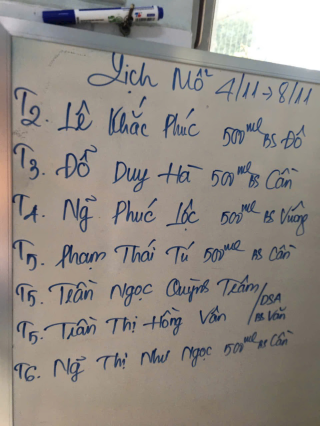 Lịch Mổ 4/11 → 8/11
T2. Lê Khắc Phúc 500ml BS Đô
T3. Đỗ Duy Hà 500ml BS Cần
T4. Ng̃ Phúc Lộc 500ml BS Vương
T5. Phạm Thái Tú 500ml BS Cần
T5. Trần Ngọc Quỳnh Trâm /
T5. Trần Thị Hồng Vân / DSA BS Văn
T6. Ng̃ Thị Như Ngọc 500ml BS Cần